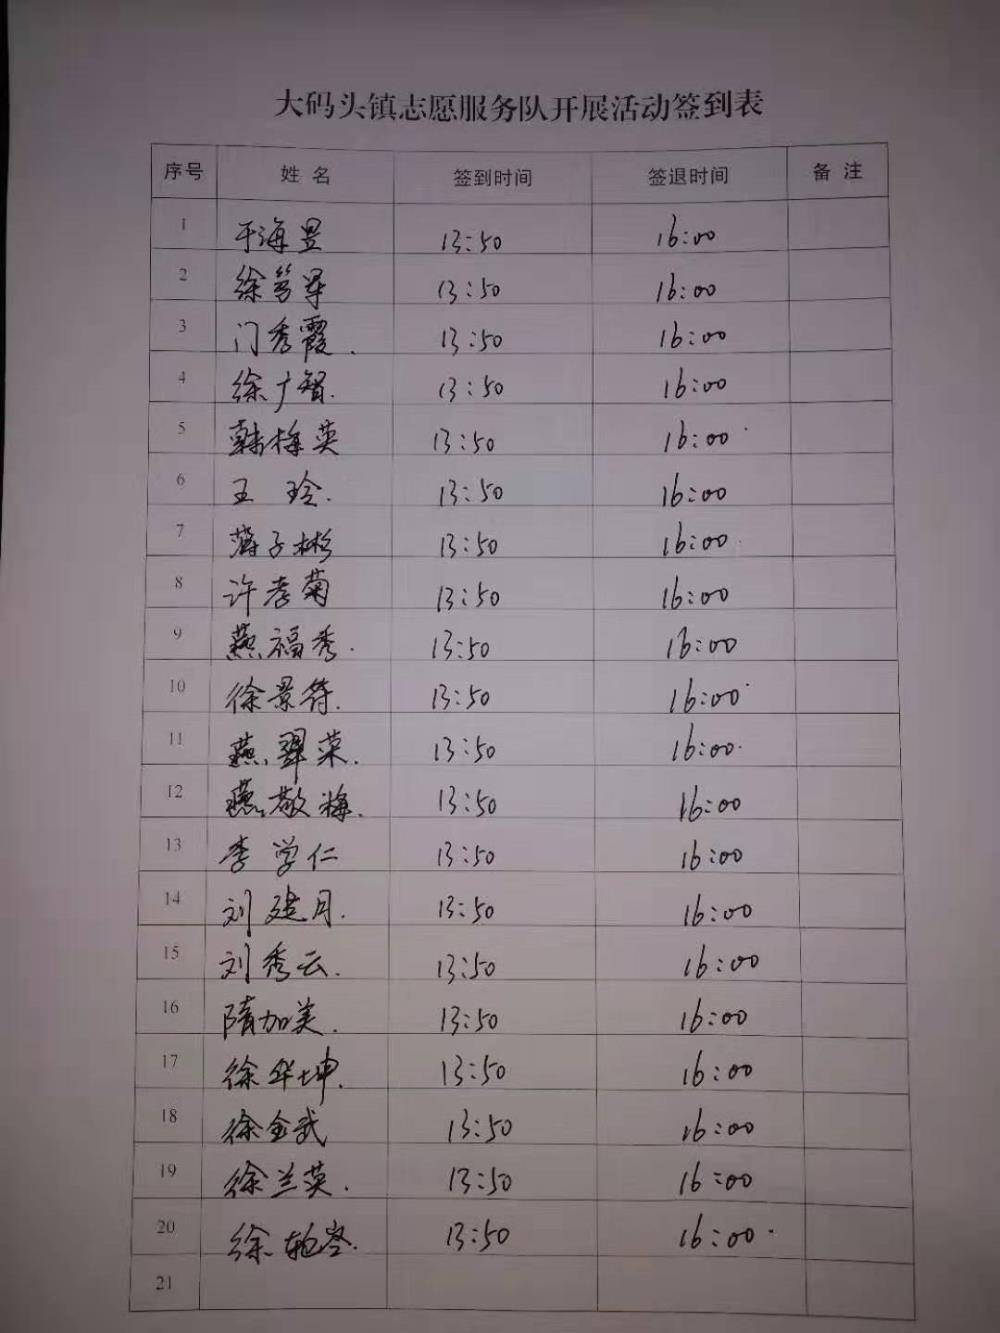 大码头镇志愿服务队开展活动签到表
序号 姓 名 签到时间 签退时间 备 注
1 于海昱 13:50 16:00
2 徐 13:50 16:00
3 门秀霞. 13:50 16:00
4 徐广智. 13:50 16:00
5 韩梅英 13:50 16:00
6 王 玲. 13:50 16:00
7 薄子彬 13:50 16:00
8 许孝菊 13:50 16:00
9 燕福秀. 13:50 16:00
10 徐景符. 13:50 16:00
11 燕翠菜. 13:50 16:00
12 燕敬梅. 13:50 16:00
13 李学仁 13:50 16:00
14 刘建月. 13:50 16:00
15 刘秀云. 13:50 16:00
16 隋加美. 13:50 16:00
17 徐华坤. 13:50 16:00
18 徐金武 13:50 16:00
19 徐兰英. 13:50 16:00
20 徐 13:50 16:00
21